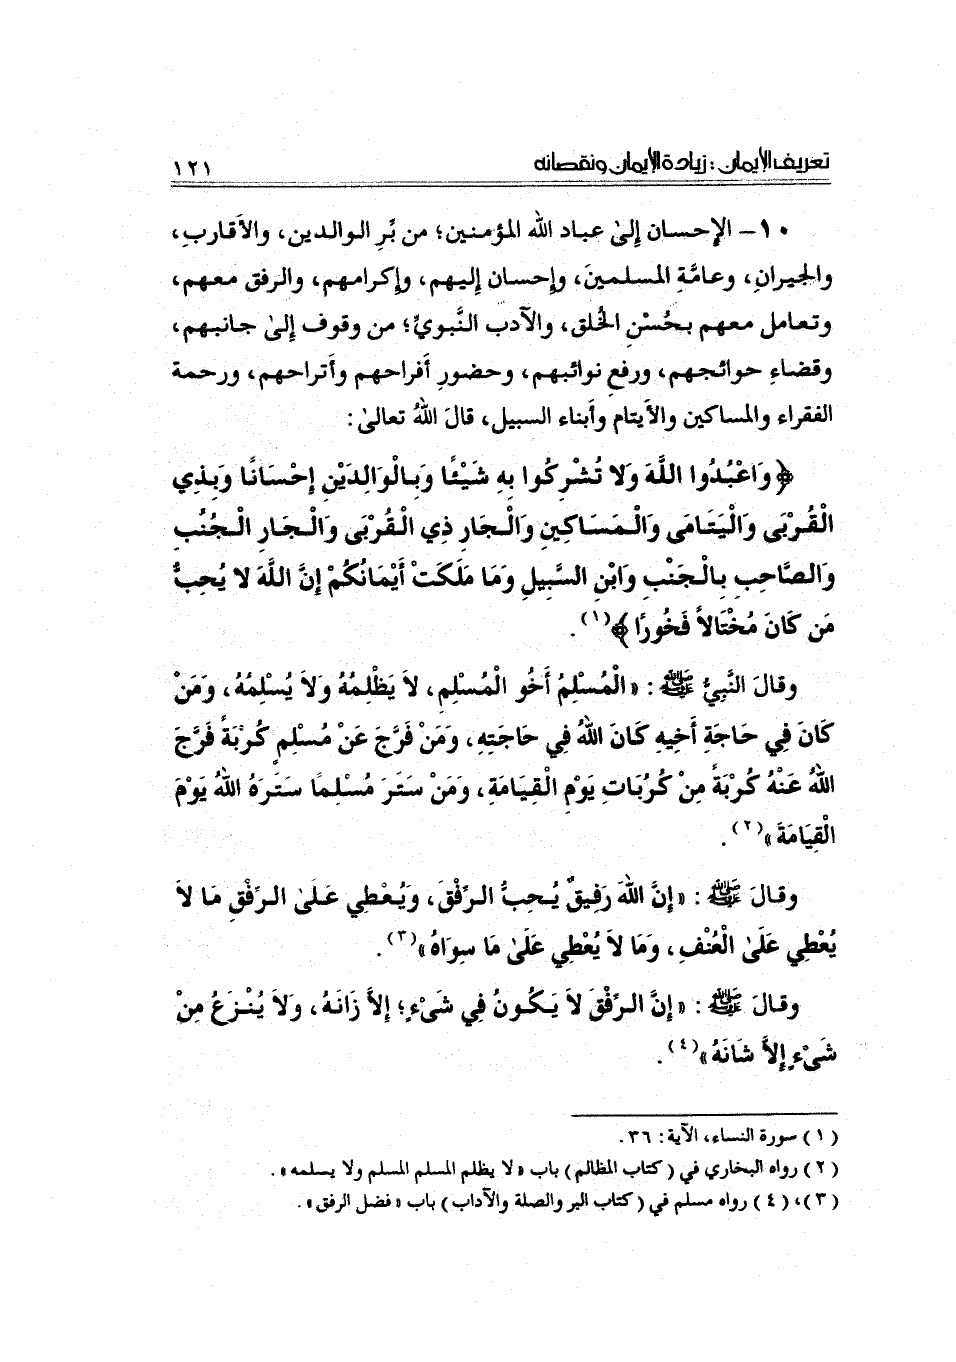 تعريف الإيمان : زيادة الإيمان ونقصانه
١٢١
١٠- الإحسان إلىٰ عباد الله المؤمنين؛ من بِّرِ الوالدين، والأقاربِ،
والجيرانِ، وعامَّةِ المسلمينَ، وإحسان إليهم، وإكرامهم، والرفق معهم،
وتعامل معهم بحُسْنِ الخُلق، والآدب النَّبويِّ؛ من وقوف إلىٰ جانبهم،
وقضاءِ حوائجهم، ورفعِ نوائبهم، وحضورِ أفراحهم وأتراحهم، ورحمة
الفقراء والمساكين والأيتام وأبناء السبيل، قالَ اللهُ تعالىٰ:
﴿وَاعْبُدُوا اللَّهَ وَلا تُشْرِكُوا بِهِ شَيْئًا وَبِالْوَالِدَيْنِ إِحْسَانًا وَبِذِي
الْقُرْبَى وَالْيَتَامَى وَالْمَسَاكِينِ وَالْجَارِ ذِي الْقُرْبَى وَالْجَارِ الْجُنُبِ
وَالصَّاحِبِ بِالْجَنْبِ وَابْنِ السَّبِيلِ وَمَا مَلَكَتْ أَيْمَانُكُمْ إِنَّ اللَّهَ لا يُحِبُّ
مَن كَانَ مُخْتَالاً فَخُورًا﴾(١).
وقالَ النَّبِيُّ ﷺ: «الْمُسْلِمُ أَخُو الْمُسْلِمِ، لاَ يَظْلِمُهُ وَلاَ يُسْلِمُهُ، وَمَنْ
كَانَ فِي حَاجَةِ أَخِيهِ كَانَ اللهُ فِي حَاجَتِهِ، وَمَنْ فَرَّجَ عَنْ مُسْلِمٍ كُرْبَةً فَرَّجَ
اللهُ عَنْهُ كُرْبَةً مِنْ كُرُبَاتِ يَوْمِ الْقِيَامَةِ، وَمَنْ سَتَرَ مُسْلِمًا سَتَرَهُ اللهُ يَوْمَ
الْقِيَامَةَ»(٢).
وقالَ ﷺ: «إِنَّ اللهَ رَفِيقٌ يُحِبُّ الرِّفْقَ، وَيُعْطِي عَلَىٰ الرِّفْقِ مَا لاَ
يُعْطِي عَلَىٰ الْعُنْفِ، وَمَا لاَ يُعْطِي عَلَىٰ مَا سِوَاهُ»(٣).
وقالَ ﷺ: «إِنَّ الرِّفْقَ لاَ يَكُونُ فِي شَيْءٍ؛ إِلاَّ زَانَهُ، وَلاَ يُنْزَعُ مِنْ
شَيْءٍ إِلاَّ شَانَهُ»(٤).
(١) سورة النساء، الآية: ٣٦.
(٢) رواه البخاري في (كتاب المظالم) باب «لا يظلم المسلم المسلم ولا يسلمه».
(٣)، (٤) رواه مسلم في (كتاب البر والصلة والآداب) باب «فضل الرفق».